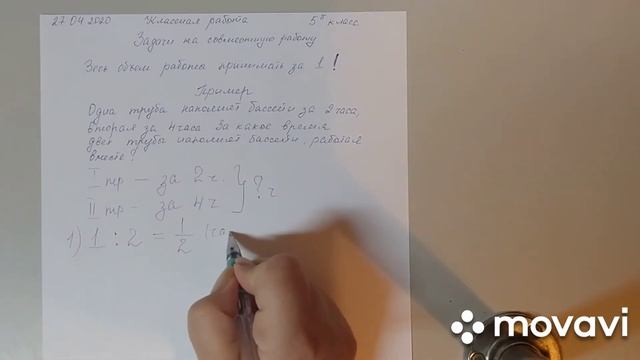 27.04.2020 Классная работа 5 класс.
Задачи на совместную работу
Весь объем работы принимать за 1 !
Пример
Одна труба наполнит бассейн за 2 часа,
вторая за 4 часа За какое время
две трубы наполнят бассейн, работая
вместе?
I тр — за 2 ч. } ? ч
II тр — за 4 ч
1) 1 : 2 = 1/2
movavi